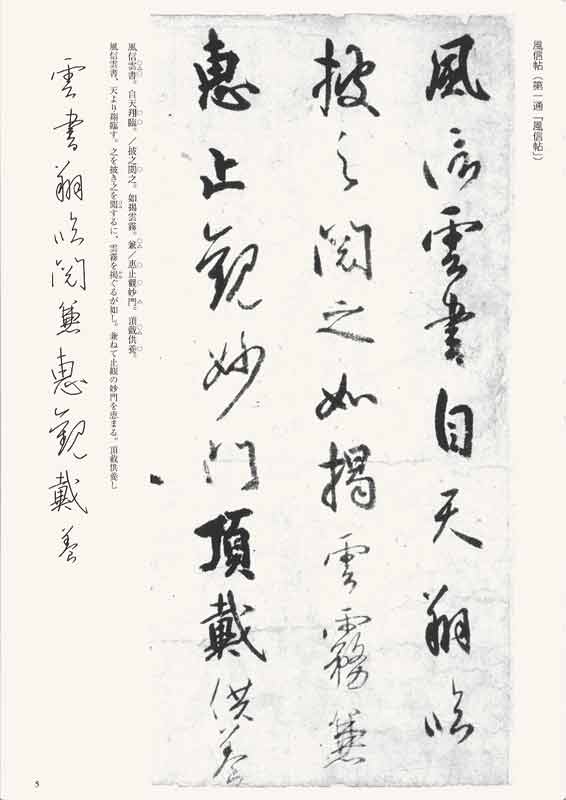 風信帖（第一通『風信帖』）
風信雲書自天翔臨
披之閲之如揭雲霧兼
惠止觀妙門頂戴供養
風信雲書。自天翔臨。／披之閲之。如揭雲霧。兼／惠止觀妙門。頂戴供養。
風信雲書、天より翔臨す。之を披き之を閲するに、雲霧を揭ぐるが如し。兼ねて止観の妙門を恵まる。頂戴供養し
雲書翔臨閲兼惠觀戴養
5